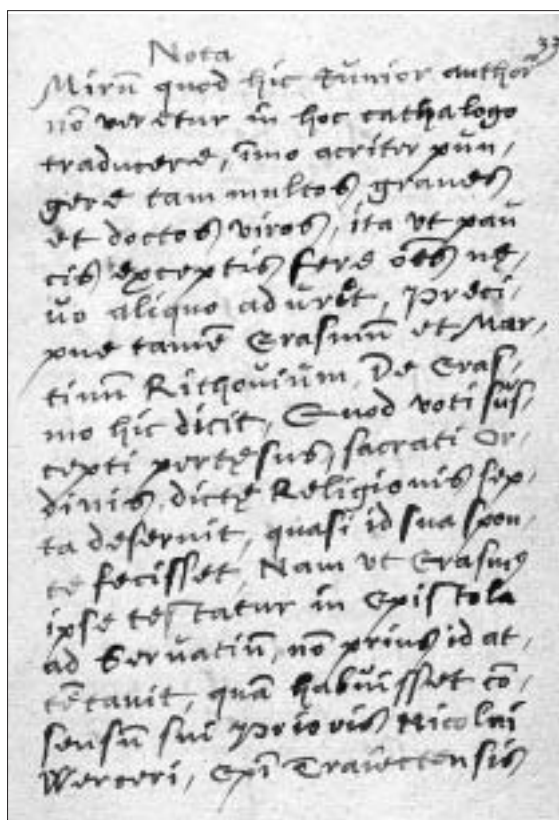 Nota
33
Mirū quod hic Iunior author
nō veretur in hoc cathalogo
traducere, īmo acriter pun,
gere tam multos graues
et doctos viros, ita vt pau
cis exceptis fere oēs nę,
uo aliquo adurēt, Preci,
pue tamē Erasmū et Mar,
tinū Rithouium. De Eras,
mo hic dicit, Quod voti sus,
cepti pertęsus, sacrati Or,
dinis, dictę Religionis sep,
ta deseruit, quasi id sua spon,
te fecisset, Nam vt Erasmus
ipse testatur in Epistola
ad Seruatiū, nō prius id at,
tētauit, quā habuisset cō,
sensū sui Prioris Nicolai
Werceri, Epī Traiectensis